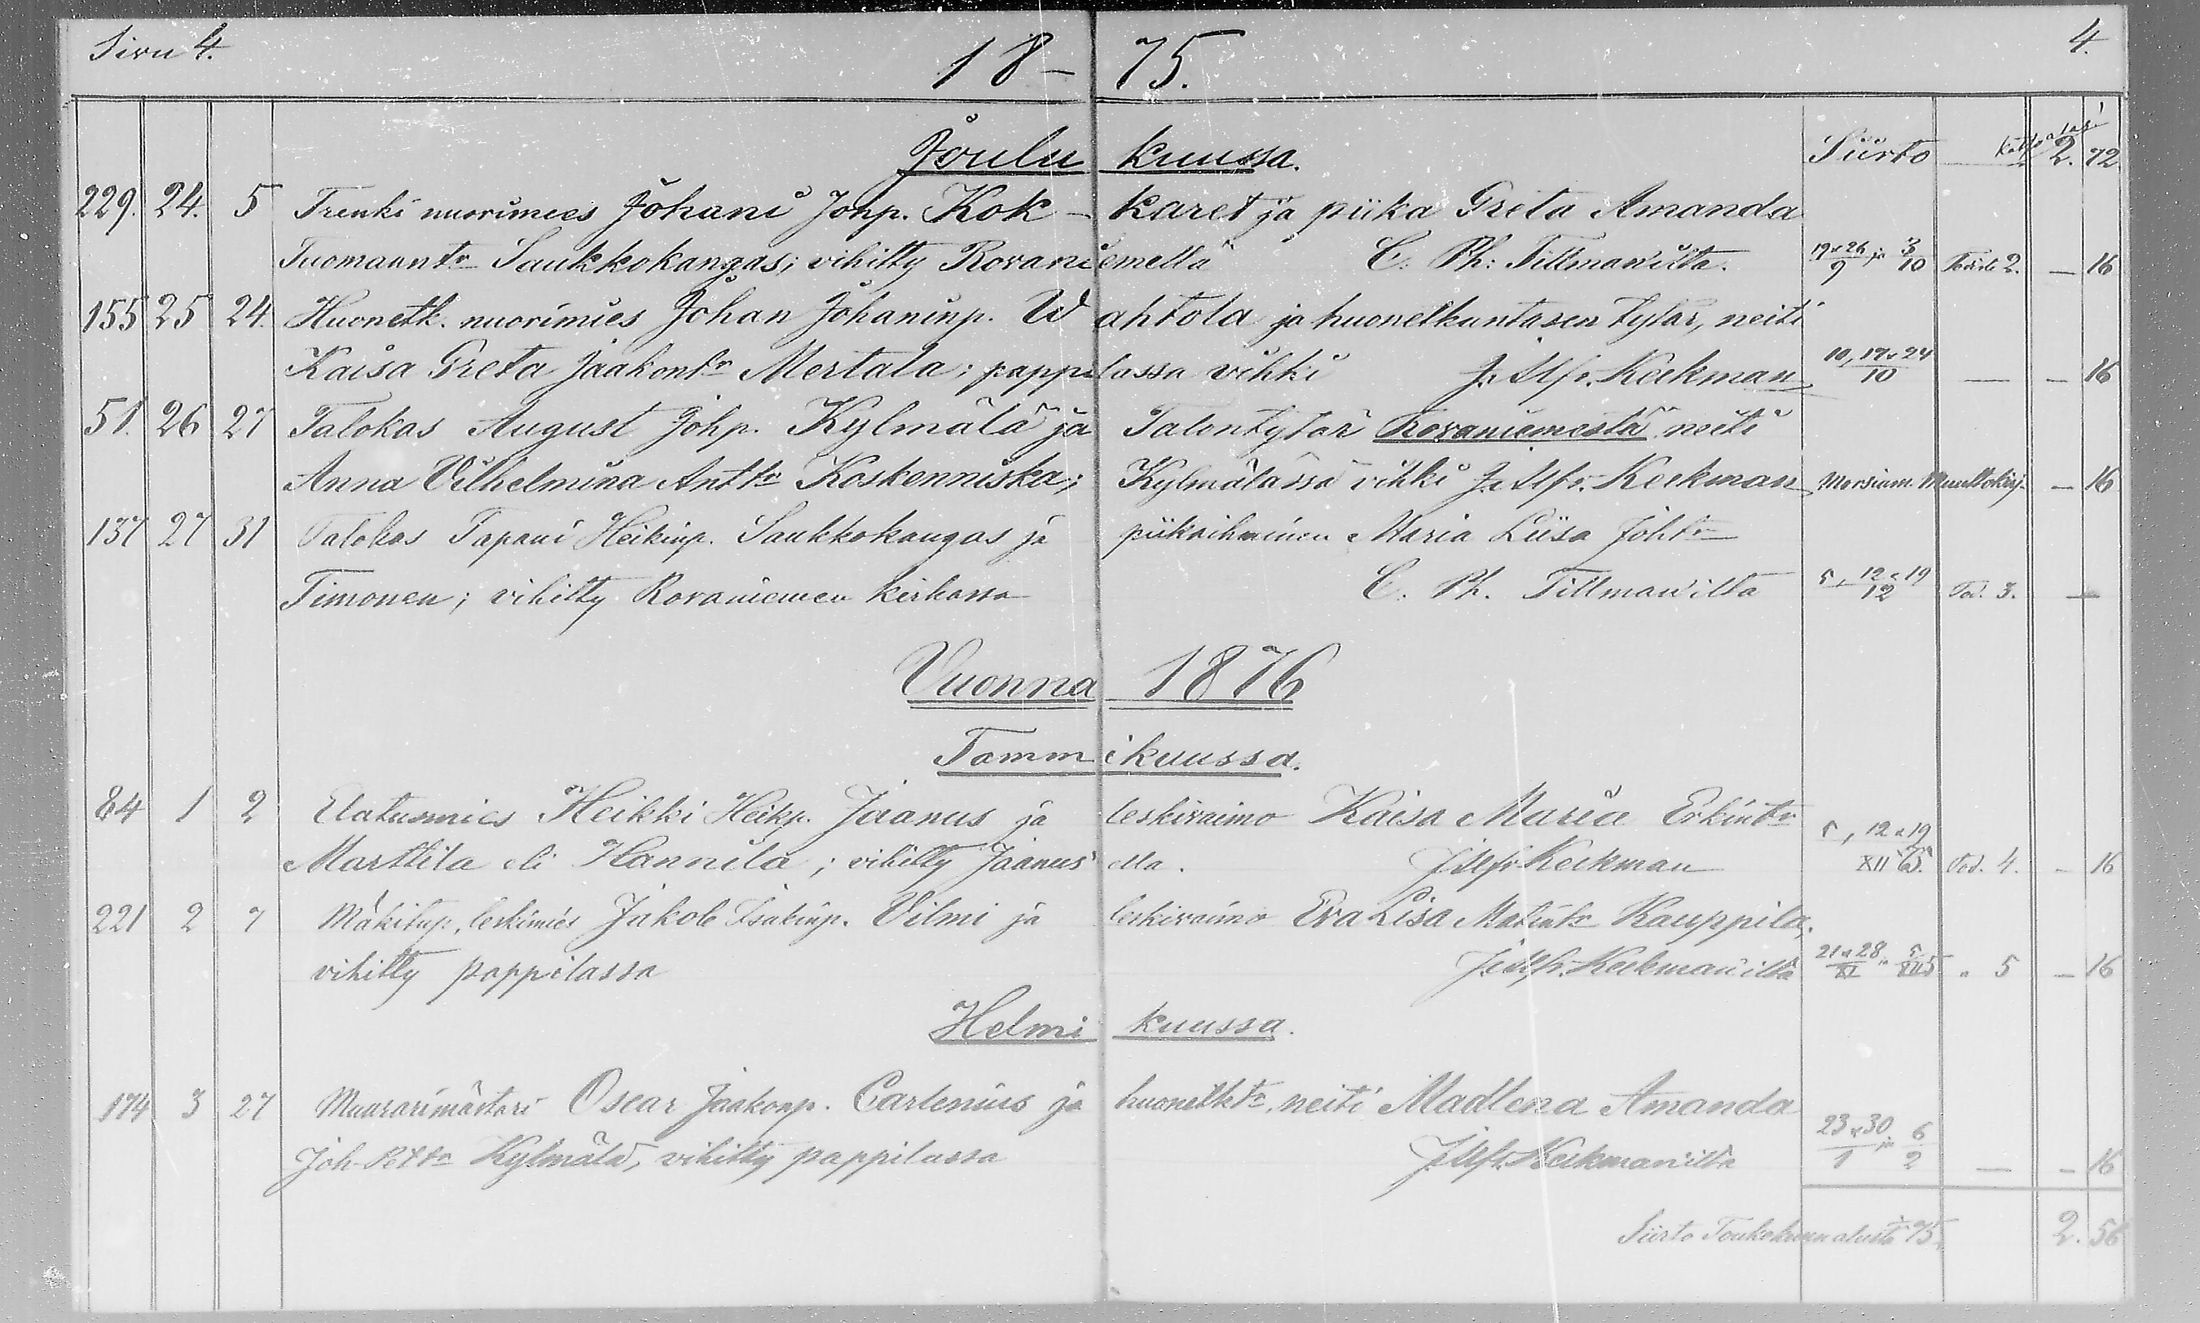 Sivu 4. 18 – 75. 4.
Joulu kuussa. Siirto 2. 72
229. 24. 5 Trenki nuorimies Johani Johp. Kok – karet ja piika Greta Amanda
Tuomaantr Saukkokangas; vihitty Rovaniemellä C. Ph: Tillman'ilta. 19 x 26/9 ja 3/10 Todist. 2. — 16
155 25 24. Huonetk. nuorimies Johan Johaninp. Wahtola ja huonetkuntasen tytär, neiti
Kaisa Greta Jaakontr Mertala; pappilassa vihki J. Alfr. Keckman 10, 17 x 24/10 — — 16
51. 26 27 Talokas August Johp. Kylmälä ja Talontytär Rovaniemestä neiti
Anna Vilhelmina Anttr Koskenniska; Kylmälässä vihki J. Alfr. Keckman Morsiam. Muuttokirj. — 16
137 27 31 Talokas Tapani Heikinp. Saukkokangas ja piikaihminen Maria Liisa Johtr
Timonen; vihitty Rovaniemen kirkossa C. Ph. Tillman'ilta 5, 12 x 19/12 Tod. 3. —
Vuonna 1876
Tammikuussa.
84 1 2 Elatusmies Heikki Heikp. Jaanus ja leskivaimo Kaisa Maria Erkintr
Marttila eli Hannila; vihitty Jaanus'ella. J. Alfr. Keckman 5, 12 x 19/XII 75. Tod. 4. — 16
221 2 7 Mäkitup. leskimies Jakob Isakinp. Vilmi ja leskivaimo Eva Lisa Matintr Kauppila;
vihitty pappilassa J. Alfr. Keckman'ilta 21 x 28/XI " 5/XII 75 " 5 — 16
Helmi kuussa.
174 3 27 Muurarimästari Oscar Jaakonp. Carlenius ja huonetktr, neiti Madlena Amanda
Joh-Pettr Kylmälä, vihitty pappilassa J. Alfr. Keckman'ilta 23 x 30/1 ja 6/2 — — 16
Siirto Toukokuun alusta 75. 2. 56